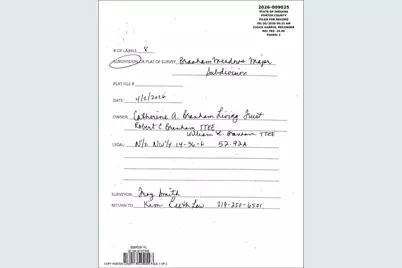 2026-009025
STATE OF INDIANA
PORTER COUNTY
FILED FOR RECORD
CHUCK HARRIS, RECORDER
REC FEE: 25.00
PAGES: 2
# OF LABELS 8
SUBDIVISION OR PLAT OF SURVEY: Branham Meadows Major
Subdivision
PLAT FILE #
DATE: 4/2/2026
OWNER: Catherine A. Branham Living Trust
Robert C Branham TTEE
William L. Branham TTEE
LEGAL: N/2 NW/4 14-36-6 52.92A
SURVEYOR: Troy Smith
RETURN TO Kim Law 219-250-6501